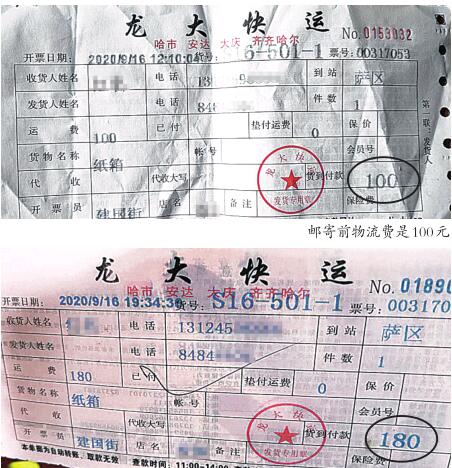 龙大快运
哈市 安达 大庆 齐齐哈尔
No.0153032
开票日期: 2020/9/16 12:10:04 S16-501-1 票号: 00317053
收货人姓名 电话 到站 萨区
发货人姓名 电话 848 件数 1
运费 100 已付 垫付运费 0 保价
货物名称 纸箱 帐号 会员号
代收 代收大写 货到付款 100
开票员 建国街 店名 备注 保险费
第 联:发货人
龙大快运
发货专用章
邮寄前物流费是100元
龙大快运
哈市 安达 大庆 齐齐哈尔
No.01890
开票日期: 2020/9/16 19:34:30 S16-501-1 票号: 000317
收货人姓名 电话 131245 到站 萨区
发货人姓名 电话 8484 件数 1
运费 180 已付 垫付运费 0 保价
货物名称 纸箱 帐号 会员号
代收 180
开票员 建国街 店名 备注 保险费
发货专用章
本单据为自动转账、取款无效 查款时间:11:00-14:00